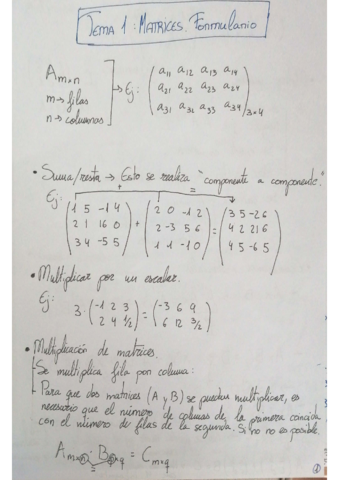 TEMA 1: MATRICES. Formulario
A m×n
m → filas
n → columnas
→ Ej:
a11 a12 a13 a14
a21 a22 a23 a24
a31 a32 a33 a34
3×4
• Suma/resta → Esto se realiza "componente a componente."
Ej:
+ =
(1 5 -1 4) (2 0 -1 2) (3 5 -2 6)
(2 1 16 0) + (2 -3 5 6) = (4 2 21 6)
(3 4 -5 5) (1 1 -1 0) (4 5 -6 5)
• Multiplicar por un escalar.
Ej:
3 · (-1 2 3) = (-3 6 9)
(2 4 1/2) (6 12 3/2)
• Multiplicación de matrices.
- Se multiplica fila por columna:
- Para que dos matrices (A y B) se puedan multiplicar, es
necesario que el número de columnas de la primera coincida
con el número de filas de la segunda. Si no no es posible.
A m×n · B n×q = C m×q
1